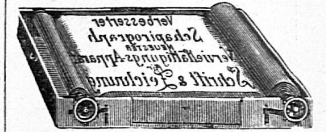 Verbesserter
Schapirograph
NEUESTER
Vervielfältigungs-Apparat
Schrift & Zeichnung